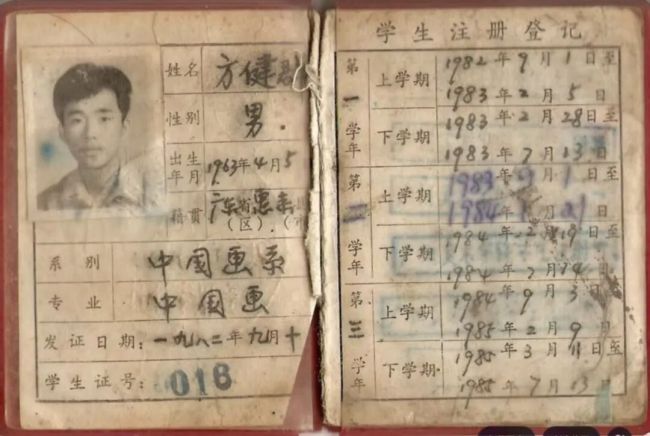 姓名 方健
性别 男
出生年月 1963年4月5
籍贯 广东省惠来
(区).(
系别 中国画系
专业 中国画
发证日期：一九八二年九月十
学生证号：016
学生注册登记
第一学年 上学期 1982年9月1日至
1983年2月5日
下学期 1983年2月28日至
1983年7月13日
第二学年 上学期 1983年9月1日至
1984年1月21日
下学期 1984年2月19日至
1984年7月14日
第三学年 上学期 1984年9月3日至
1985年2月9日
下学期 1985年3月11日至
1985年7月13日